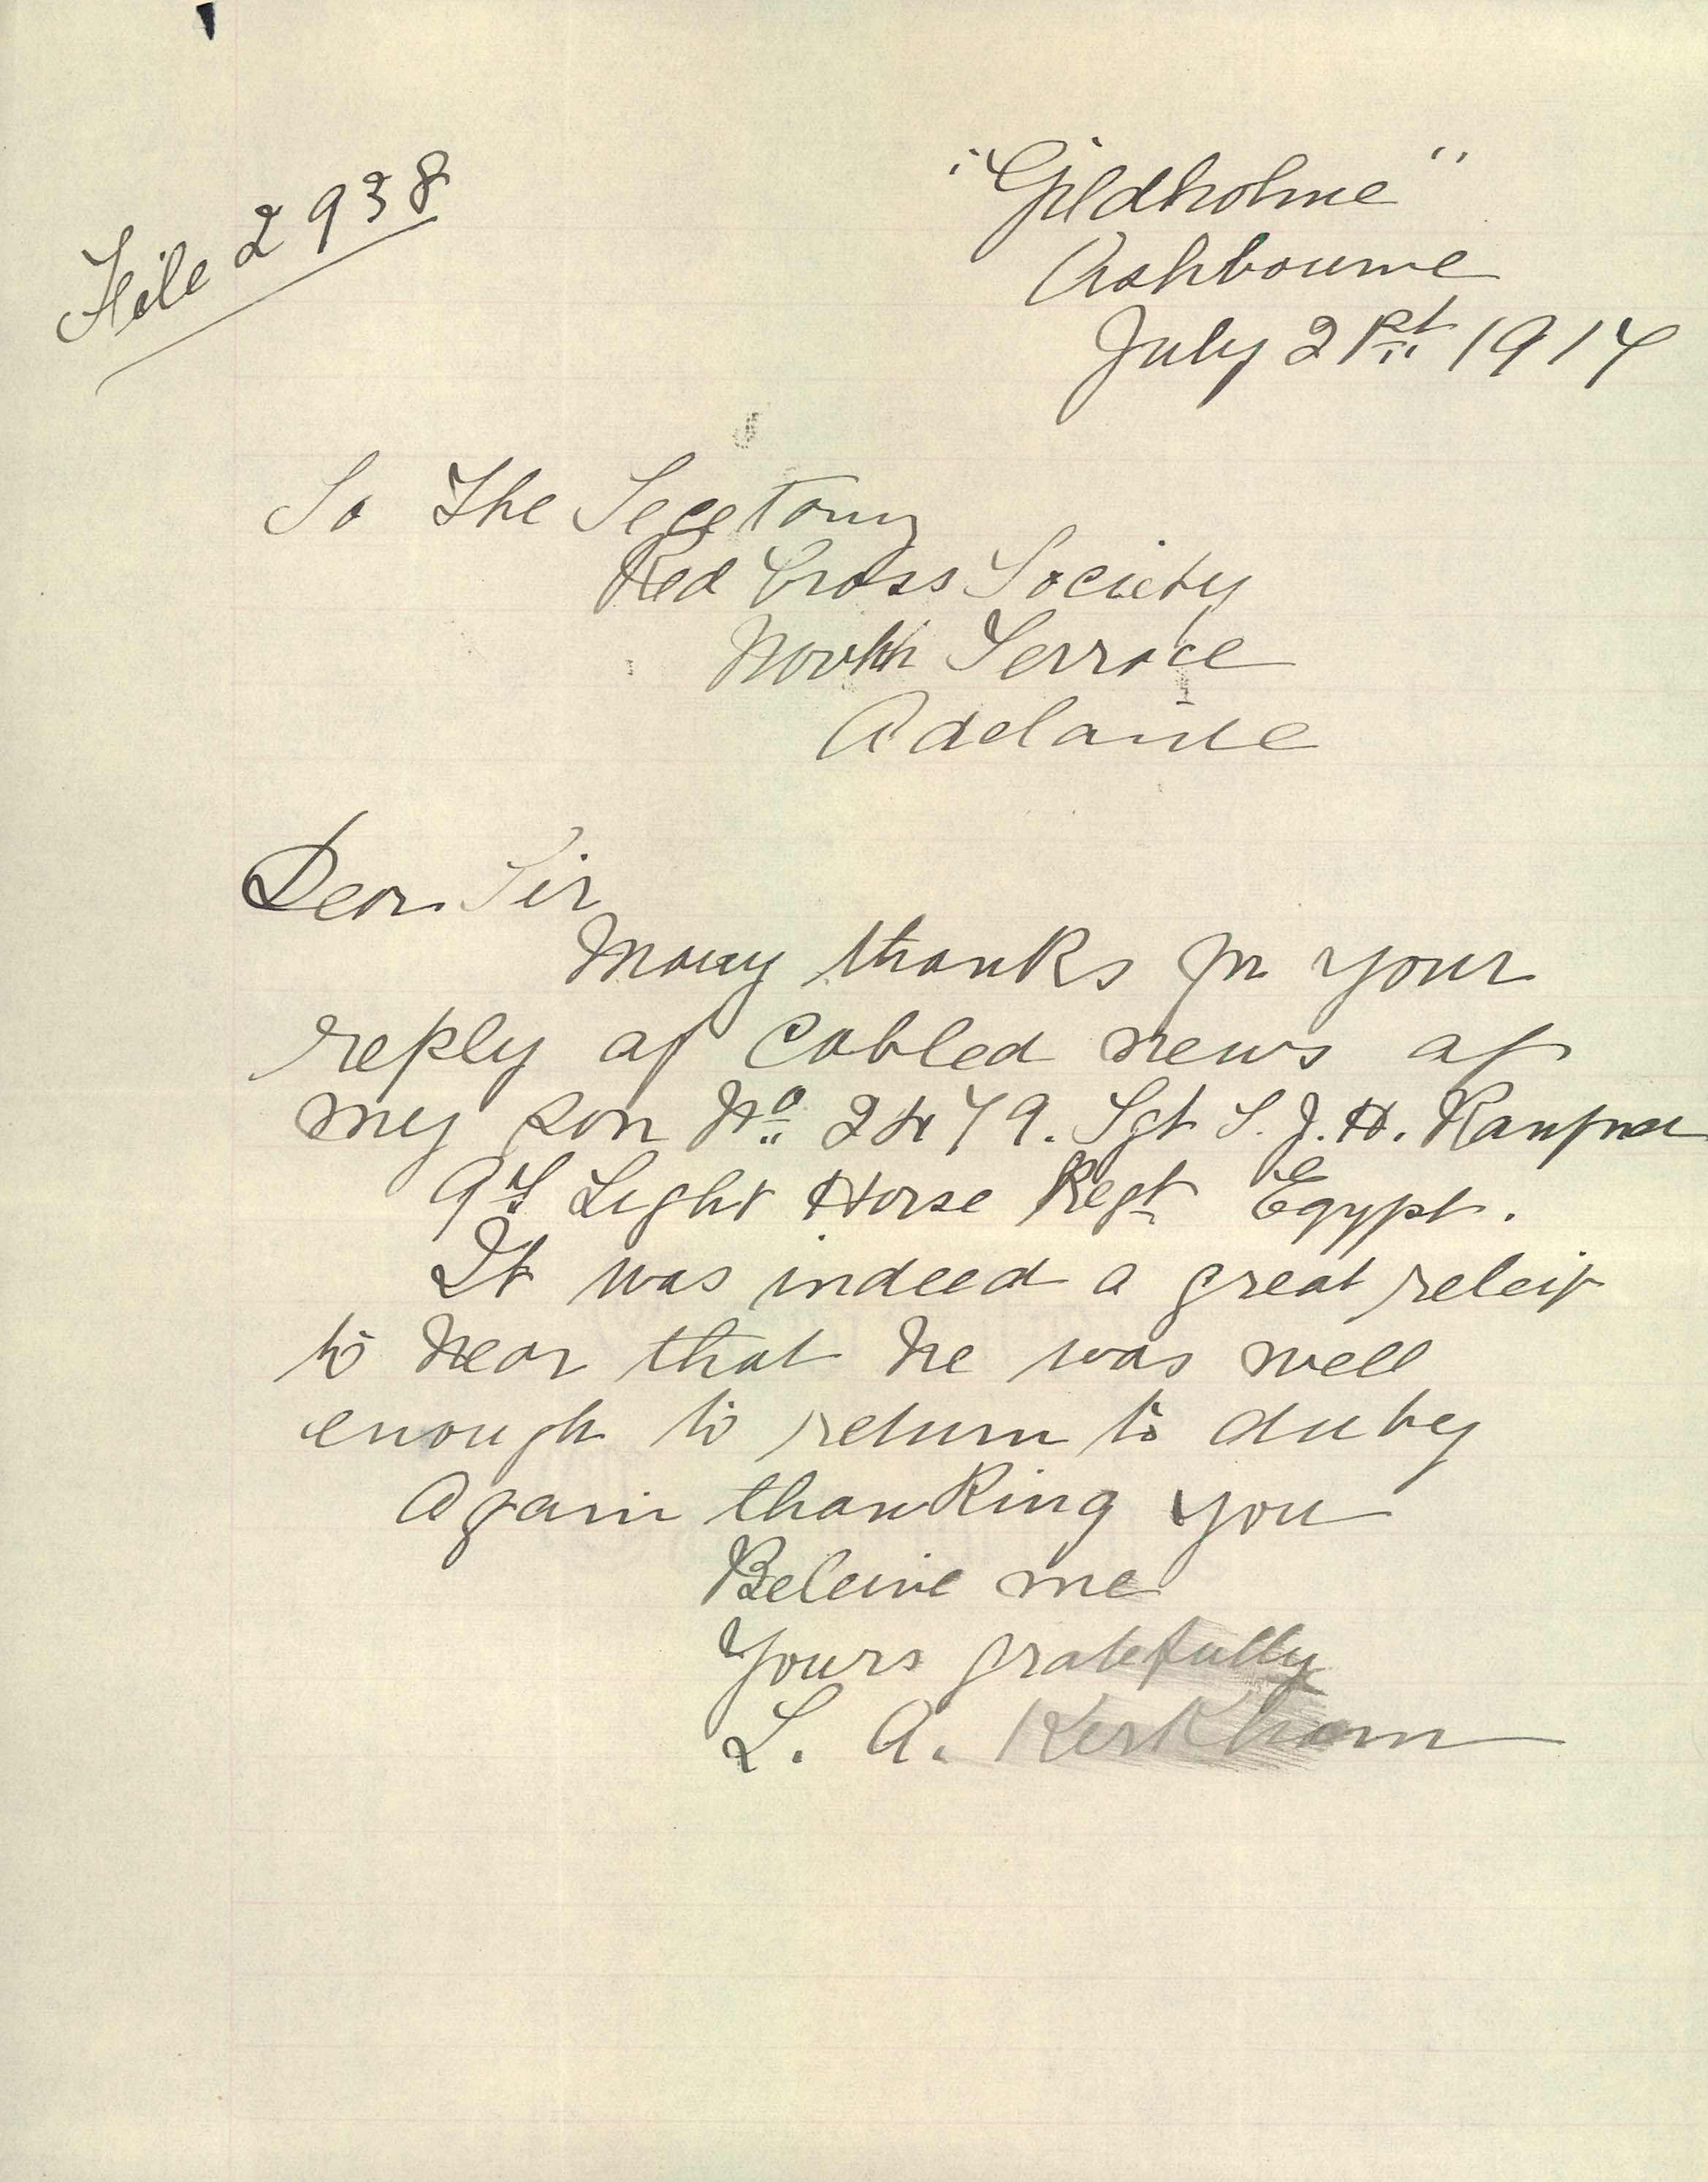 File 2938
"Gildholme"
Ashbourne
July 21st 1917
To The Secetary
Red Cross Society
North Terrace
Adelaide
Dear Sir
Many thanks for your
reply of cabled news of
my son No 2479. Sgt S. J. H.
9th Light Horse Regt Egypt.
It was indeed a great releif
to hear that he was well
enough to return to duty
Again thanking you
Beleive me
Yours gratefully
L. A. Kerkham